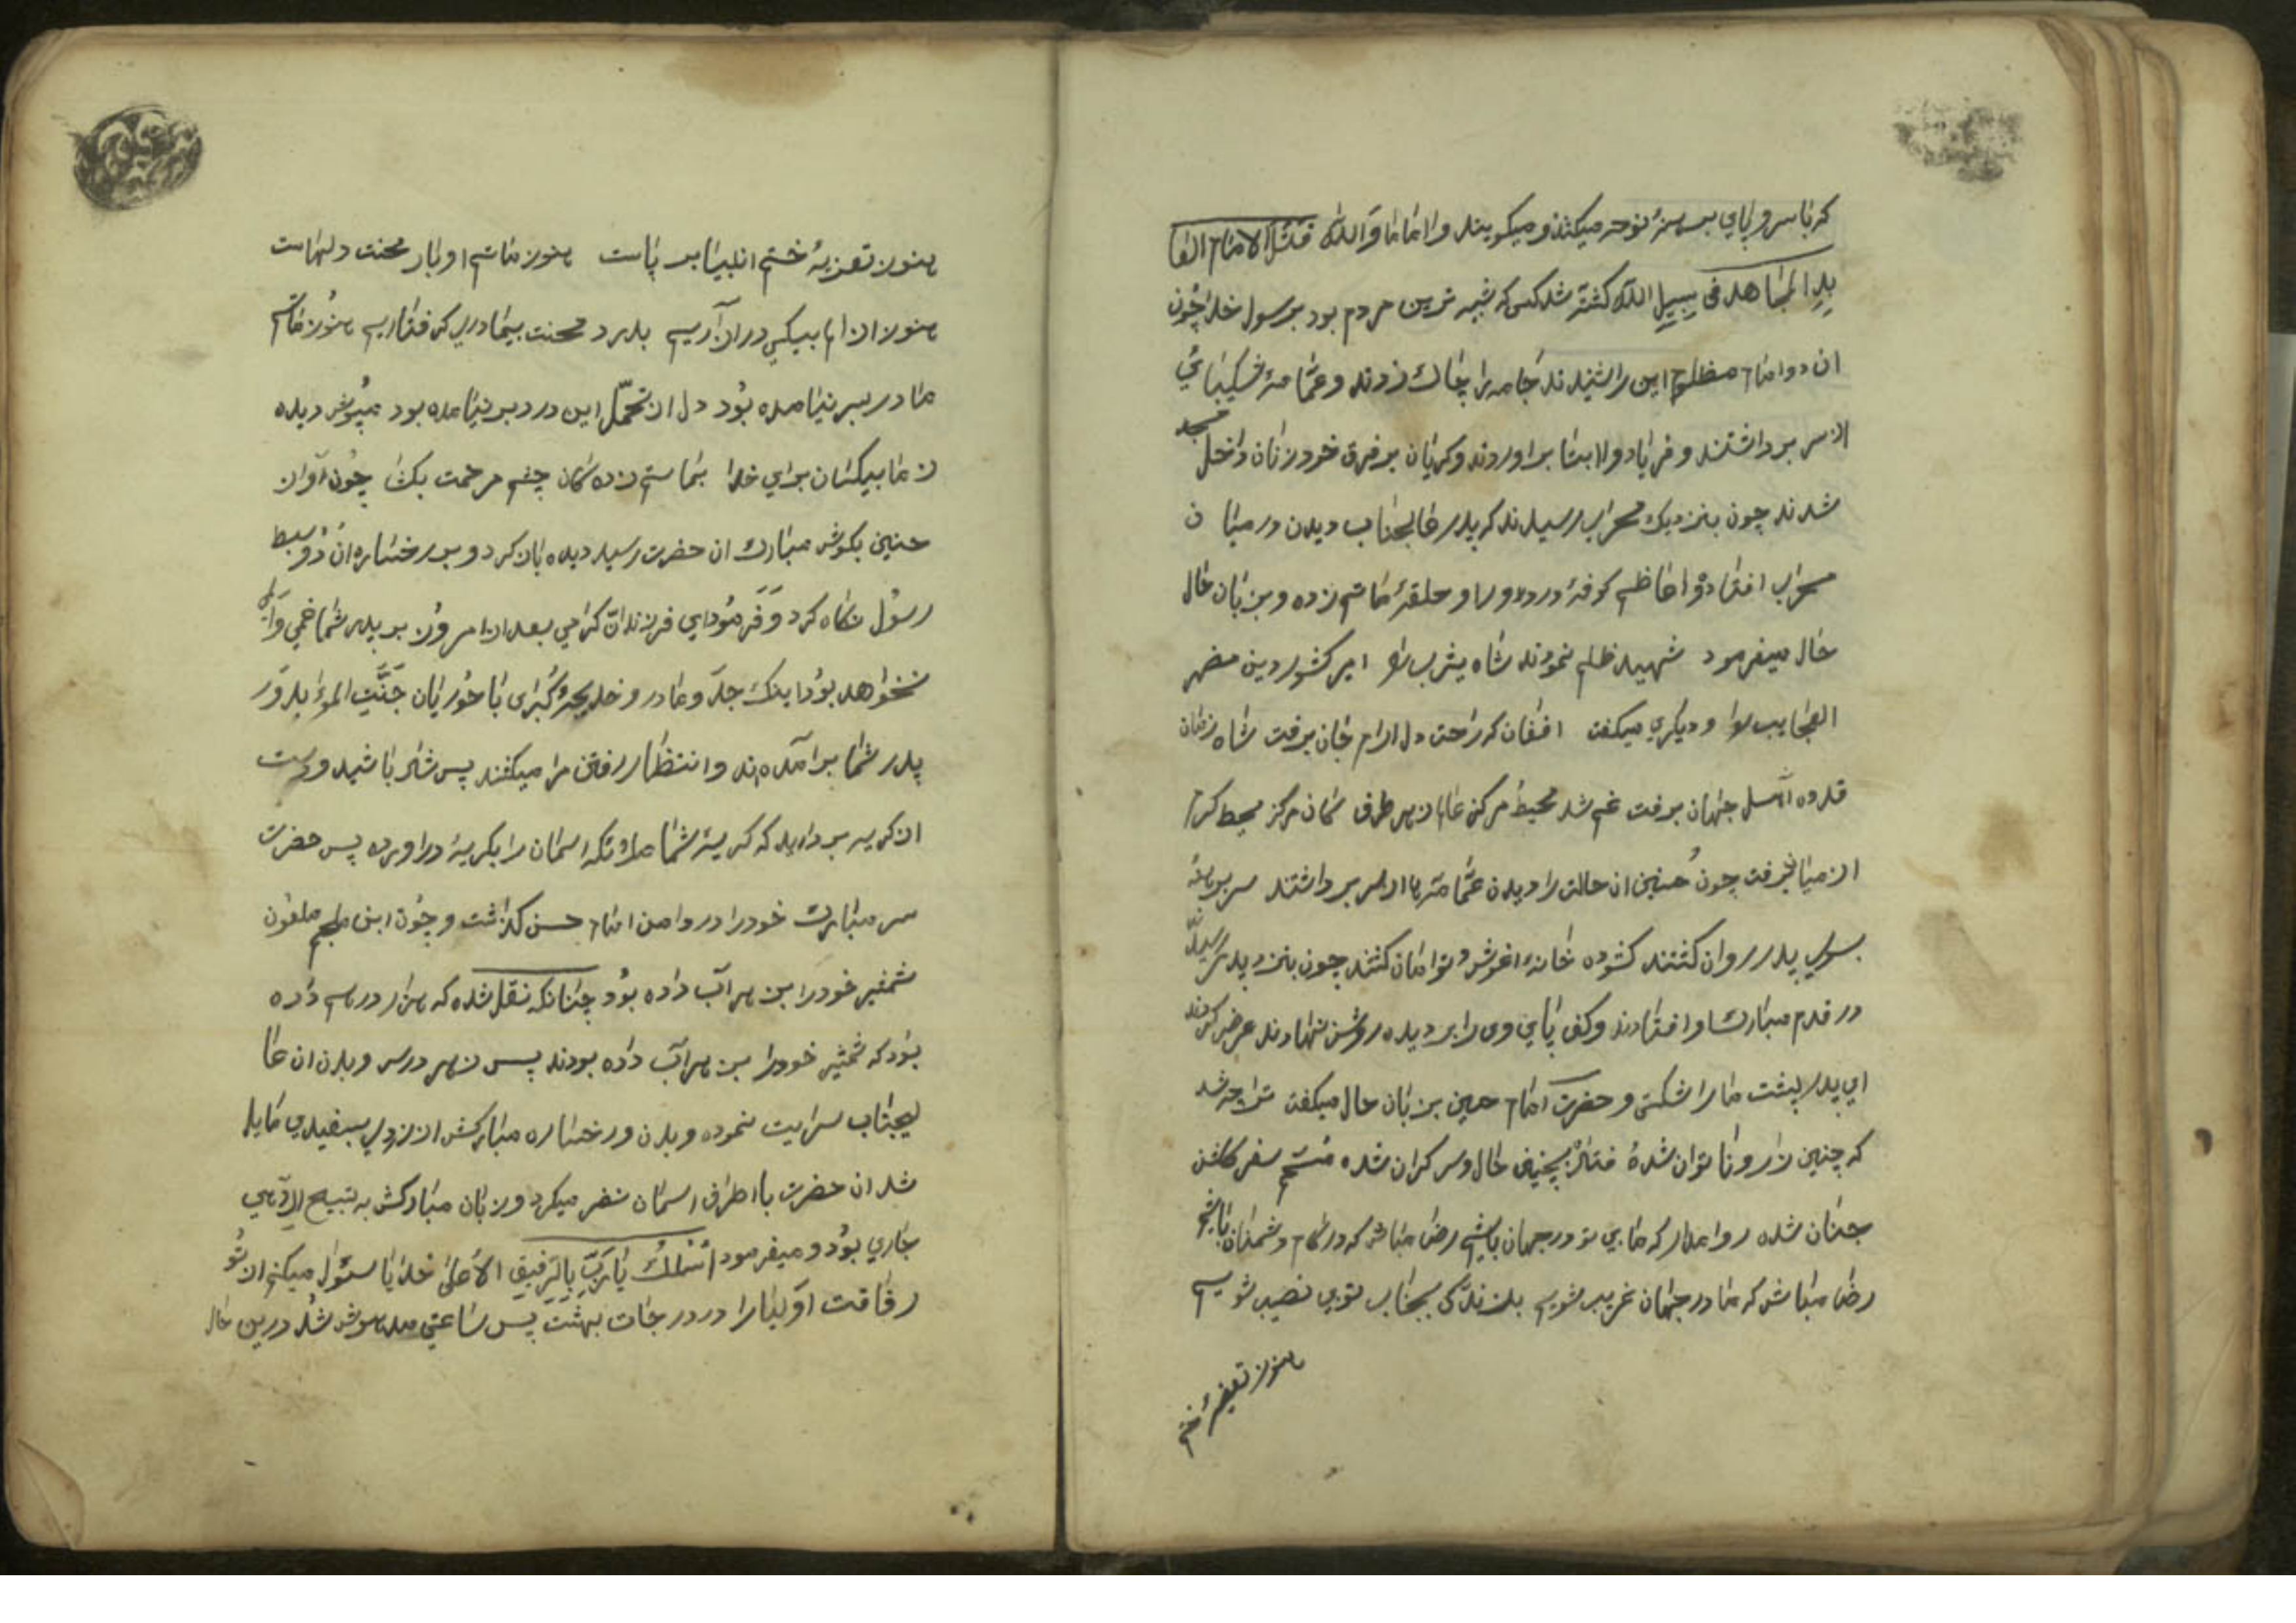 که با سر و پای برهنه نوحه میکنند و میکویند وا اماما والله قتل الامام العا
بد المجاهد فی سبیل الله کشته شد کسی که شبیه ترین مردم بود برسول خدا چون
ان دو امام مظلوم این را شنیدند جامه را چاک زدند و عمامه شکیبائی
از سر برداشتند و فریاد وا ابتا براوردند وکریان بر فرق خود زنان داخل مسجد
شدند چون بنزدیک محراب رسیدند که پدر عالیجناب دیدن در میا ن
محراب افتاده واعاظم کوفه در دور او حلقه ماتم زده و بزبان حال
حال میفرمود شهید ظلم نمودند شاه یثرب را امیر کشور دین مضهر
العجایب را و دیکری میکفت افغان که راحت دل ارام جان برفت شاه زمان
قدوه اهل جهان برفت غم شد محیط مرکز عالم ز هر طرف کان مرکز محیط کرم
از میان برفت چون حسنین ان حالت را دیدن عمامه ها از سر برداشتند سر برهنه
بسوی پدر روان کشتند کشوده خانه اغوش و توامان کشتند چون بنزد پدر رسید
در قدم مبارک او افتادند وکف پای وی را بر دیده روشن نهادند عرض کردند
ای پدر پشت ما را شکستی و حضرت امام حسین بزبان حال میکفت تراچه شد
که چنین زار و ناتوان شدهٔ فتاده بیچنین حال و سر کران شده مستم سفر کلشن
جنان شده روا مدار که ما بی تو در جهان باشیم رضا مباش که در کام دشمنان باشیم
رضا مباش که ما در جهان غریب شویم بلند ندکی بیجناب توبی نصیب شویم
هنوز تعزیهٔ ختم
هنوز تعزیهٔ ختم انبیا بر پاست هنوز ماتم او بار محنت دلهاست
هنوز از ان ام بیکی در ازاریم بدرد محنت بیمادری کرفتاریم هنوز ماتم
مادر بسر نیامده بود دل از تحمل این درد بر نیامده بود مپوش دیده
ز ما بیکسان برای خدا بماتم زده کان چشم مرحمت بکشا چون اواز
حنین بکوش مبارک ان حضرت رسید دیده باز کرد و بر رخساره ان دو سبط
رسول نکاه کرد و فرمود ای فرزندان کرامی بعد از امروز بر پدر شما غمی والمی
نخواهد بود اینک جد و مادر و خدیجه کبری با حوریان جنت المو ابدور
پدر شما برآمده اند وانتظار رفتن مرا میکشند پس شاد باشید و دست
از کریه بردارید که کریه شما ملائکه اسمان را بکریه دراورده پس حضرت
سر مبارک خود را در دامن امام حسن کذاشت و چون ابن ملجم ملعون
شمشیر خود را بزهر آب داده بود چنانکه نقل شده که هزار درهم داده
بود که شمشیر خود را بزهر آب داده بودند پس زهر در سر و بدن ان عا
لیجناب سرایت نموده و بدن و رخساره مبارکش از زردی بسفیدی مایل
شد ان حضرت با اطراف اسمان نضر میکرد و زبان مبارکش به تسبیح الهی
جاری بود و میفرمود اسئلک یا رب بالرفیق الاعلی خدایا سئوال میکنم از تو
رفاقت اولیا را در درجات بهشت پس ساعتی مدهوش شد درین حال